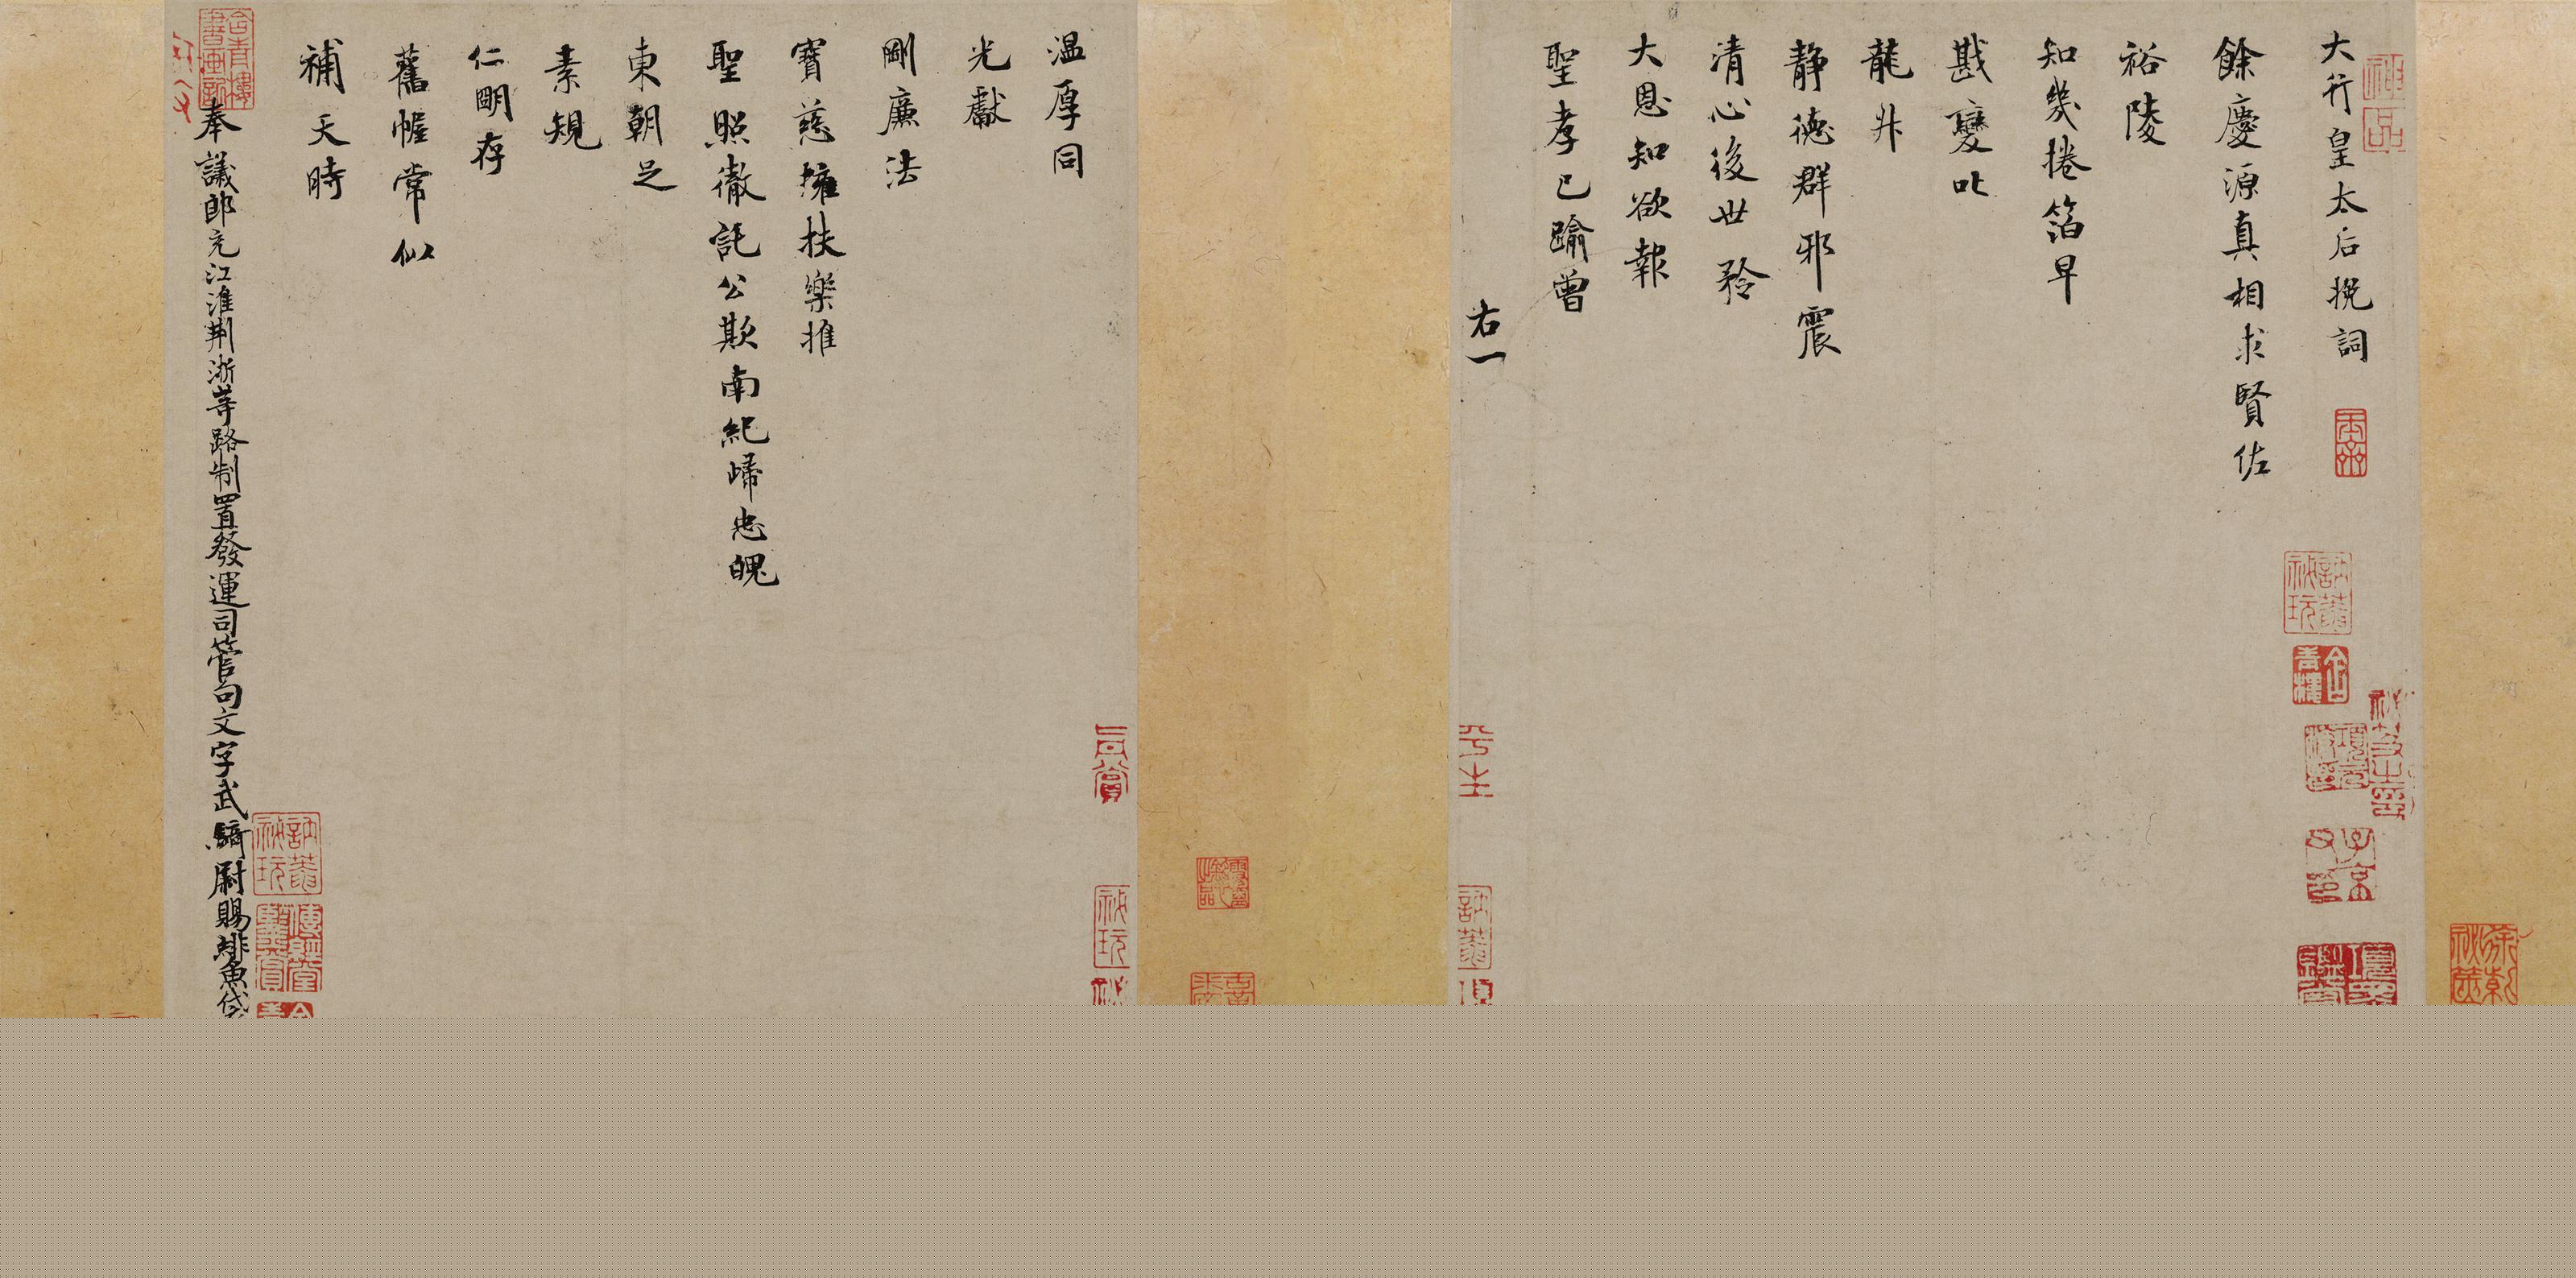 大行皇太后挽詞
餘慶源真相求賢佐
裕陵
知幾捲箔早
戡變叱
龍升
静德群邪震
清心後世矜
大恩知欲報
聖孝已踰曾
右一
温厚同
光獻
剛廉法
寶慈擁扶樂推
聖照徹託公欺南紀歸忠魄
東朝足
素規
仁明存
舊幄常似
補天時
奉議郎充江淮荆浙等路制置發運司管句文字武騎尉賜緋魚袋